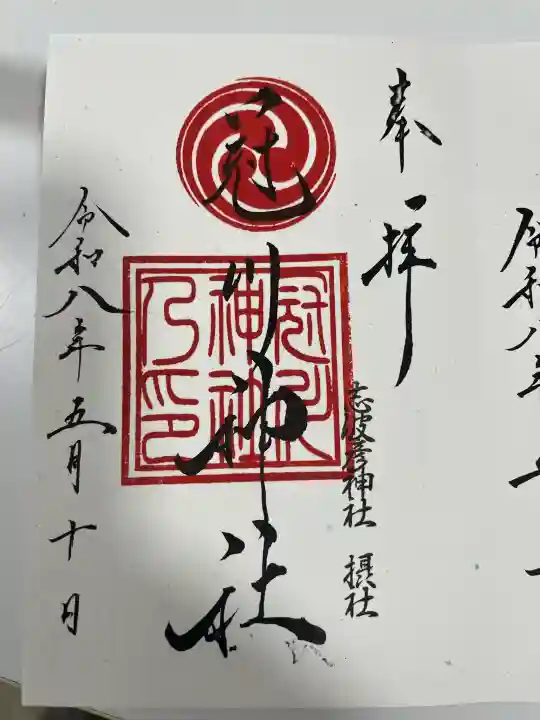 奉拝
志波彦神社 摂社
冠川神社
冠川
神社
乃印
令和八年五月十日
令和八年